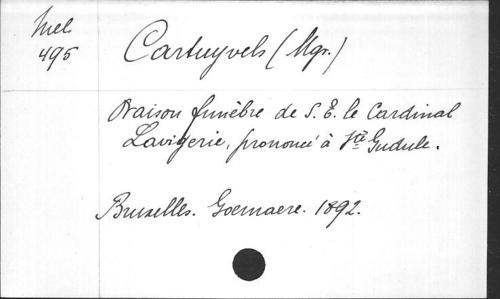 Mel
495
Cartuyvels (Mgr.)
Oraison funèbre de S. E. le Cardinal
Lavigerie, prononcé à Ste Gudule.
Bruxelles. Goemaere. 1892.